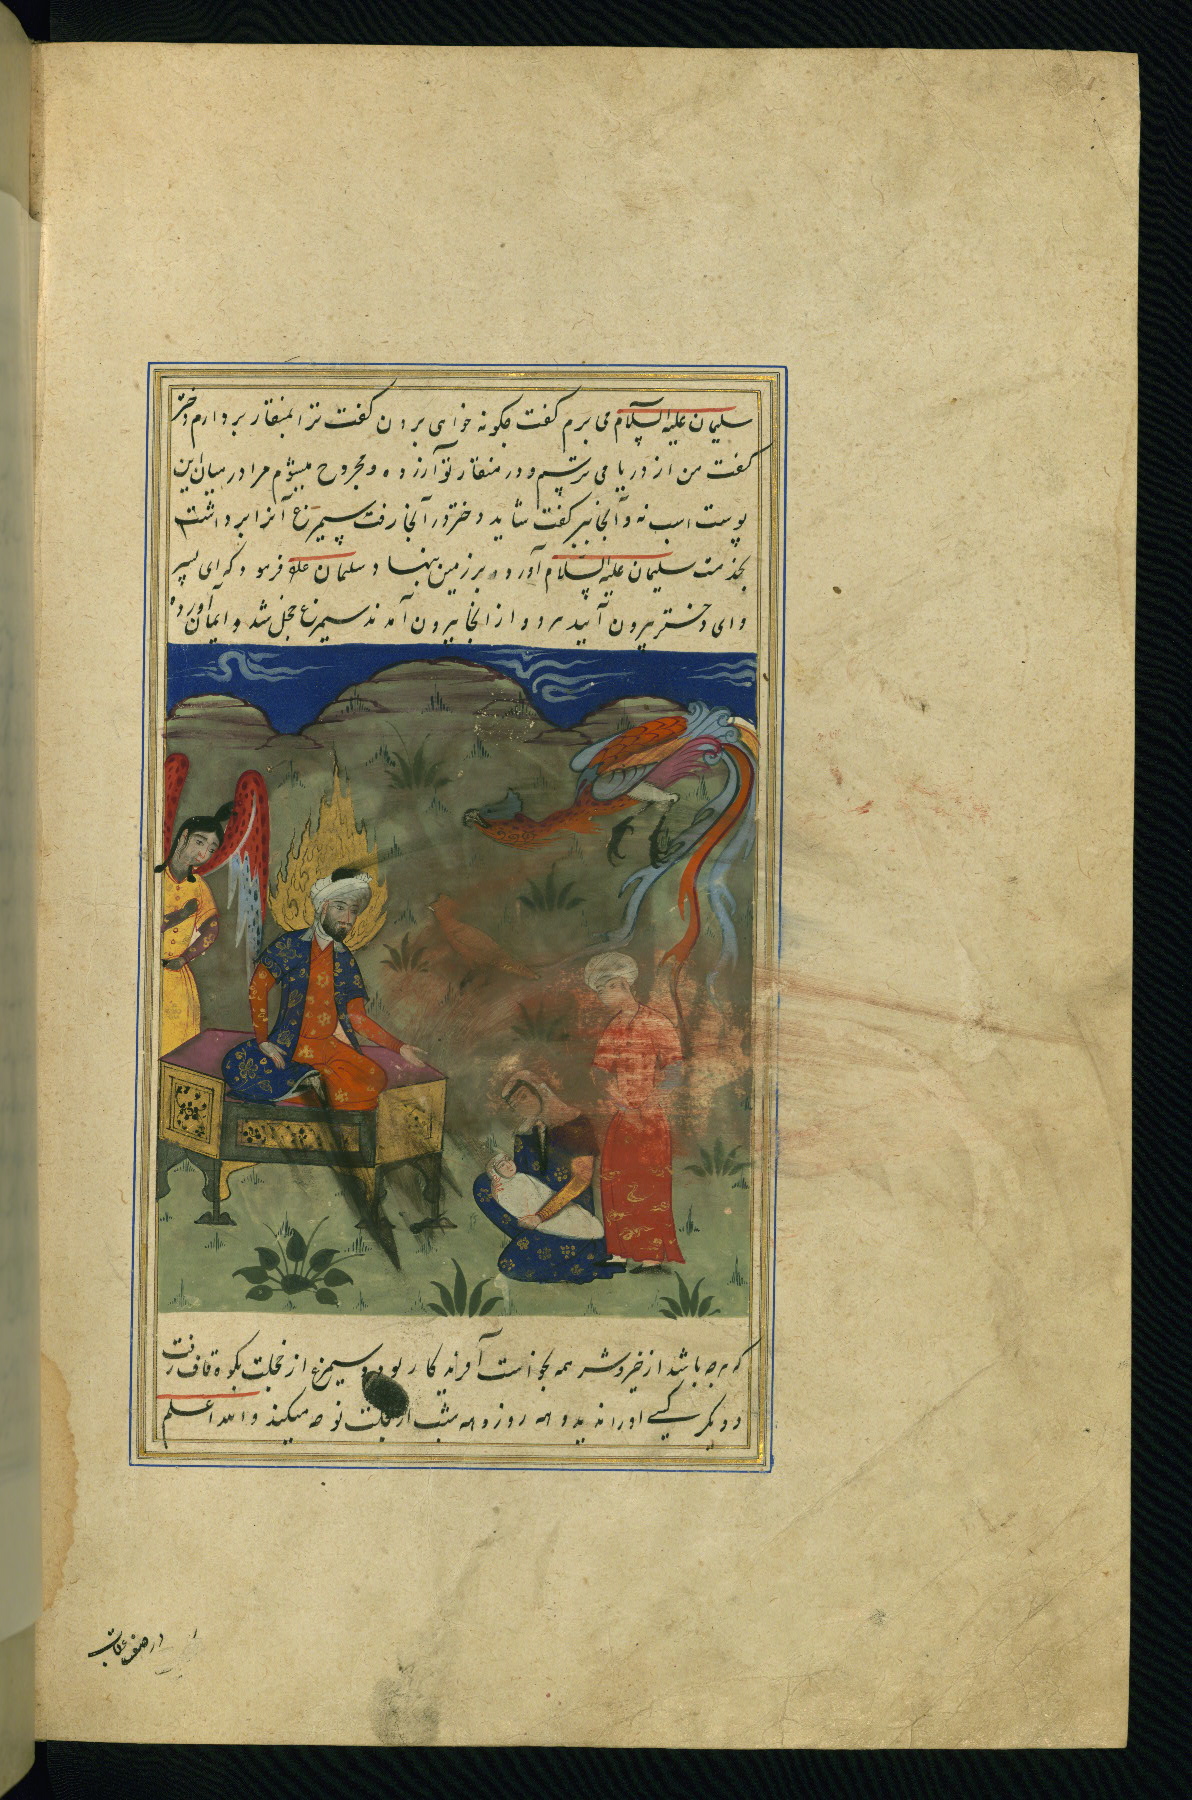 سلیمان علیه السلام می برم گفت چگونه خواهی بردن گفت ترا بمنقار بردارم دختر
گفت من از دریا می ترسم و در منقار تو آزرده و مجروح میشوم مرا در میان این
پوست اسب نه و آنجا ببر گفت شاید دختر در آنجا رفت سیمرغ آنرا برداشت
بخدمت سلیمان علیه السلام آورد و بر زمین بنهاد سلیمان علیه فرمود که ای پسر
و ای دختر بیرون آیید هر دو از آنجا بیرون آمدند سیمرغ خجل شد و ایمان آورد
که هرچه باشد از خیر و شر همه بخواست آفریدکار بود و سیمرغ از خجلت بکوه قاف رفت
و دیگر کسی اورا ندید و همه روز و همه شب از خجلت نوحه میکند والله اعلم
در صفت عقاب